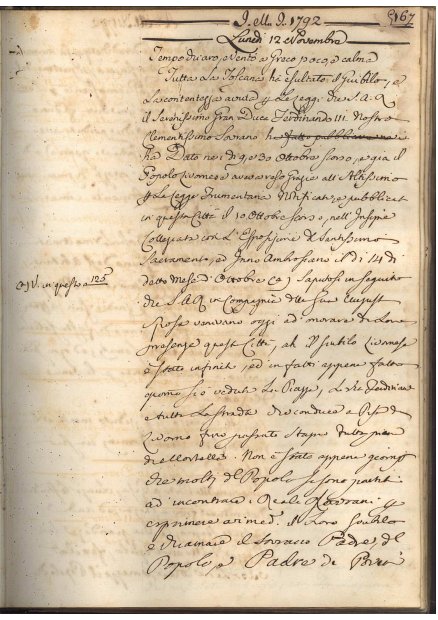 I. M. I. 1792 167
Lunedì 12 Novembre
Tempo chiaro, e Vento a Greco poco, e calma
Tutta La Toscana ha esultato il Giubilo, e
La contentezza avuta p Le Leggi, che S. A. R.
il Serenissimo Gran Duca Ferdinando III. Nostro
Clementissimo Sovrano ha fatto pubblicare
ha Dato nei dì 9, e 30 Ottobre scorso, e già il
Popolo Livornese aveva reso Grazie all'Altissimo
p La Legge Frumentaria Notificata, e pubblicat
in questa Città il 10 Ottobre scorso, nell'Insigne
Collegiata con L'Esposizione del Santissimo
Sacramento, e Inno Ambrosiano il dì 14 di
detto Mese d'Ottobre (a) Saputosi in seguito
a) V. in questo a 125
che S. A. R. in Compagnia della Sua August
Sposa venivano oggi ad onorare di Loro
presenza quest Città, ah il Giubilo Livornese
è Stato infinito, ed in fatti appena fatto
giorno si è veduto Le Piazze, La Via Ferdinan
e tutta La Strada che conduce a Pisa d
Livorno fino
. Non è Stato appena giorno
che molti del Popolo si sono portati
ad incontrare i Reali Sovrani p
esprimere ai med. il Loro Giubilo
e chiamare il Sovrano Padre del
Popolo, e Padre de